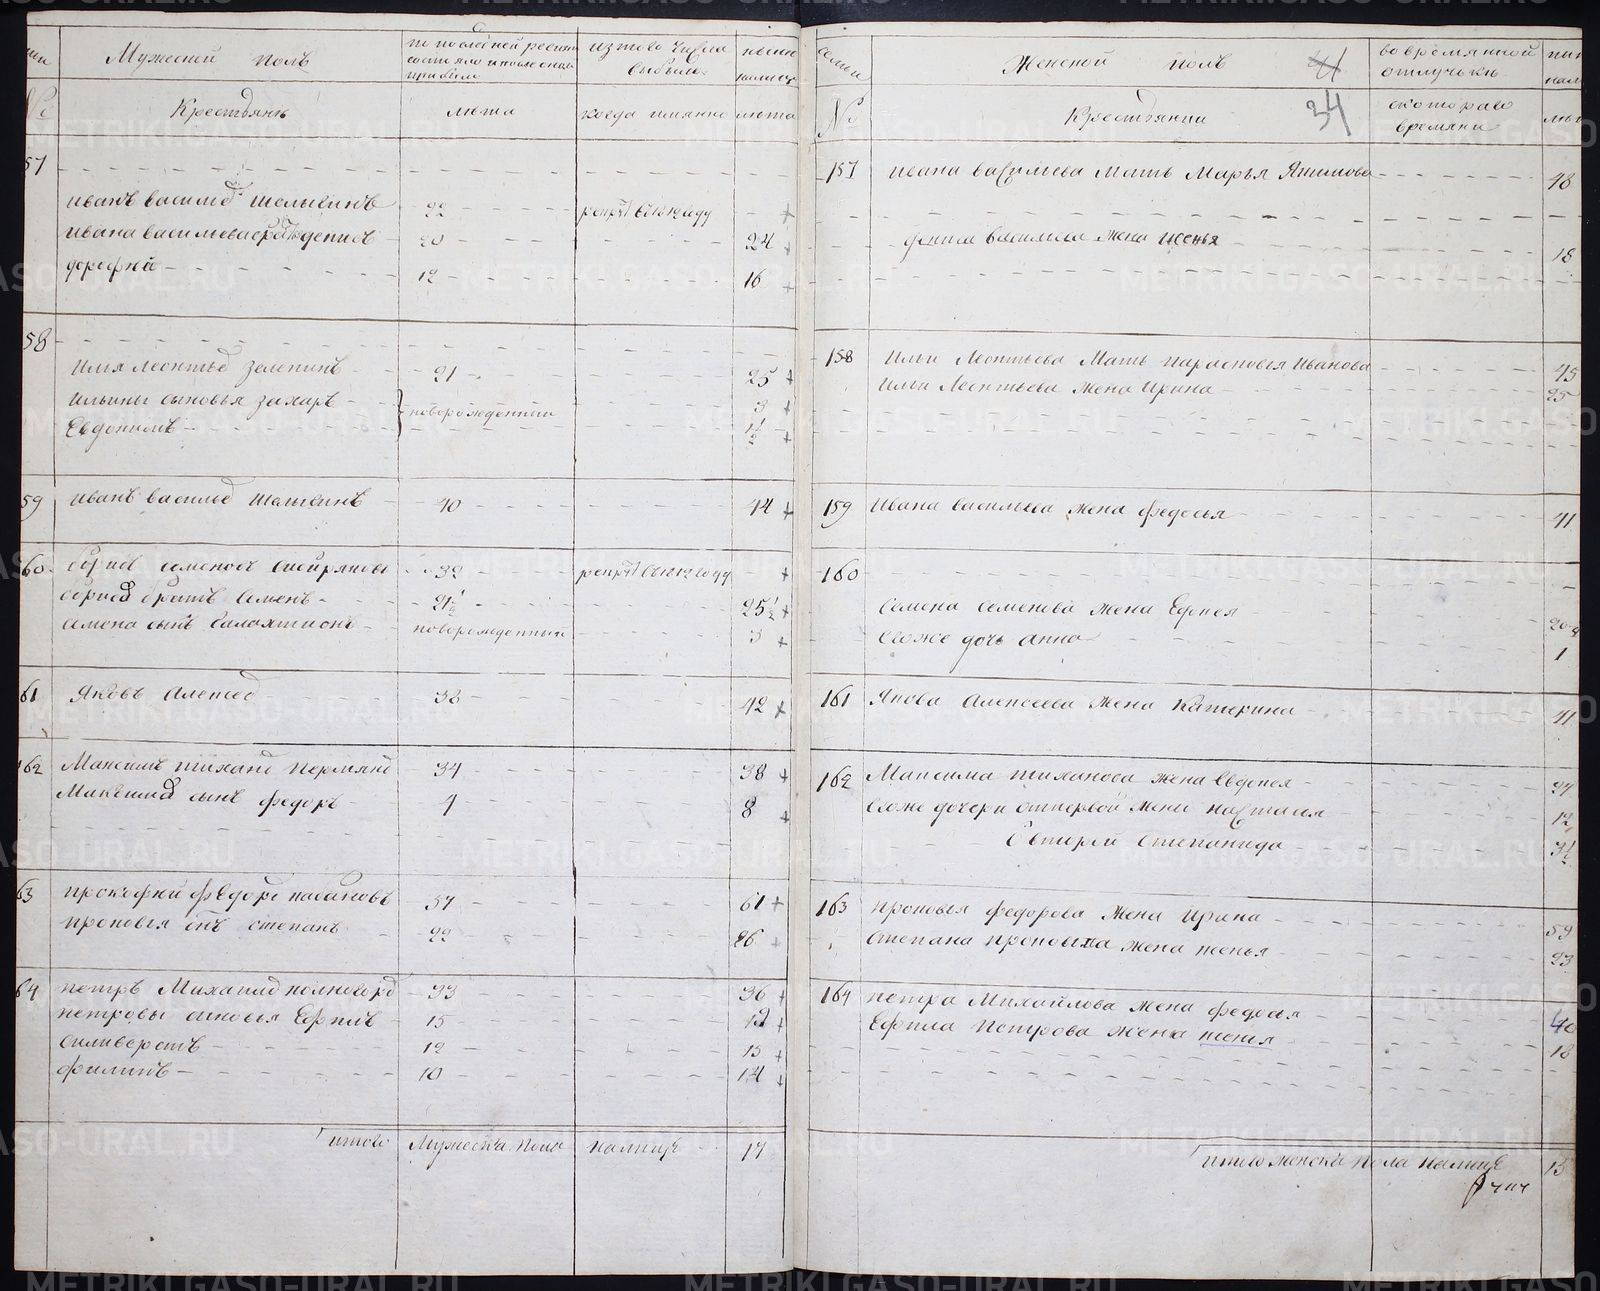 Мужеской полъ
по последней ревизи
состояло и после оной
прибыло
из того числа
выбыло
ныне
налицо
№
Крестьянъ
лета
когда имянно
лета
57
иванъ васильев шелывинъ 22 рекрут в 1812 году
ивана васильева брат денисъ 20 24
дорофей 12 16
58
илья леонтьев зелепинъ 21 25
ильины сыновья захаръ новорожденныи 3
Евдокимъ 1 1/2
59 иванъ васильев шелывинъ 40 44
60 борисъ семеновъ сибиряковъ 32 рекрут в 1812 году
бориса братъ Семенъ 21 1/2 25 1/2
семена сынъ Галахтионъ новорожденный 3
61 Яковъ алексеев 38 42
162 Максимъ тиханов пермяков 34 38
Максима сынъ федоръ 4 8
63 прокофей федоров кабаковъ 57 61
прокофья сынъ степанъ 22 26
64 петръ Михайлов 33 36
петровы сыновья Ефимъ 15 19
силиверстъ 12 15
филипъ 10 14
итого Мужеска пола налицо 17
семьи
Женской полъ
34
во временной
отлучьке
№
Крестьянки
с котораго
времяни
157 ивана васильева Мать Марья Якимова 48
дениса васильева жена ксенья 18
158 Ильи Леонтьева Мать парасковья Иванова 45
ильи Леонтьева жена ирина 25
159 Ивана васильева жена федосья 41
160
семена семенова жена Ефимья
Его же дочь анна 1
161 Якова алексеева жена Катерина 41
162 Максима тиханова жена Евдокея
Его же дочери от первой жены настасья 12
От второй степанида 3 1/2
163 прокофья федорова жена ирина 59
степана прокофьева жена ксенья 23
164 петра Михайлова жена федосья 40
Ефима петрова жена ксенья 18
итого женска пола налицо 15
METRIKI.GASO-URAL.RU